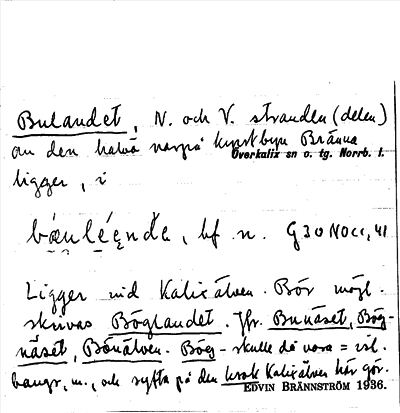 Bulandet, N. och V. stranden (delen)
av den halvö varpå kyrkbyn Bränna
Överkalix sn o. tg. Norrb. l.
ligger, i
hf n. G30 NOcc, 41
Ligger vid Kalixälven. Bör möjl.
skrivas Böglandet. Jfr. Bunäset, Bög-
näset, Bönälven. Bög- skulle då vara =
och syfta på den krok Kalixälven här gör.
EDVIN BRÄNNSTRÖM 1936.